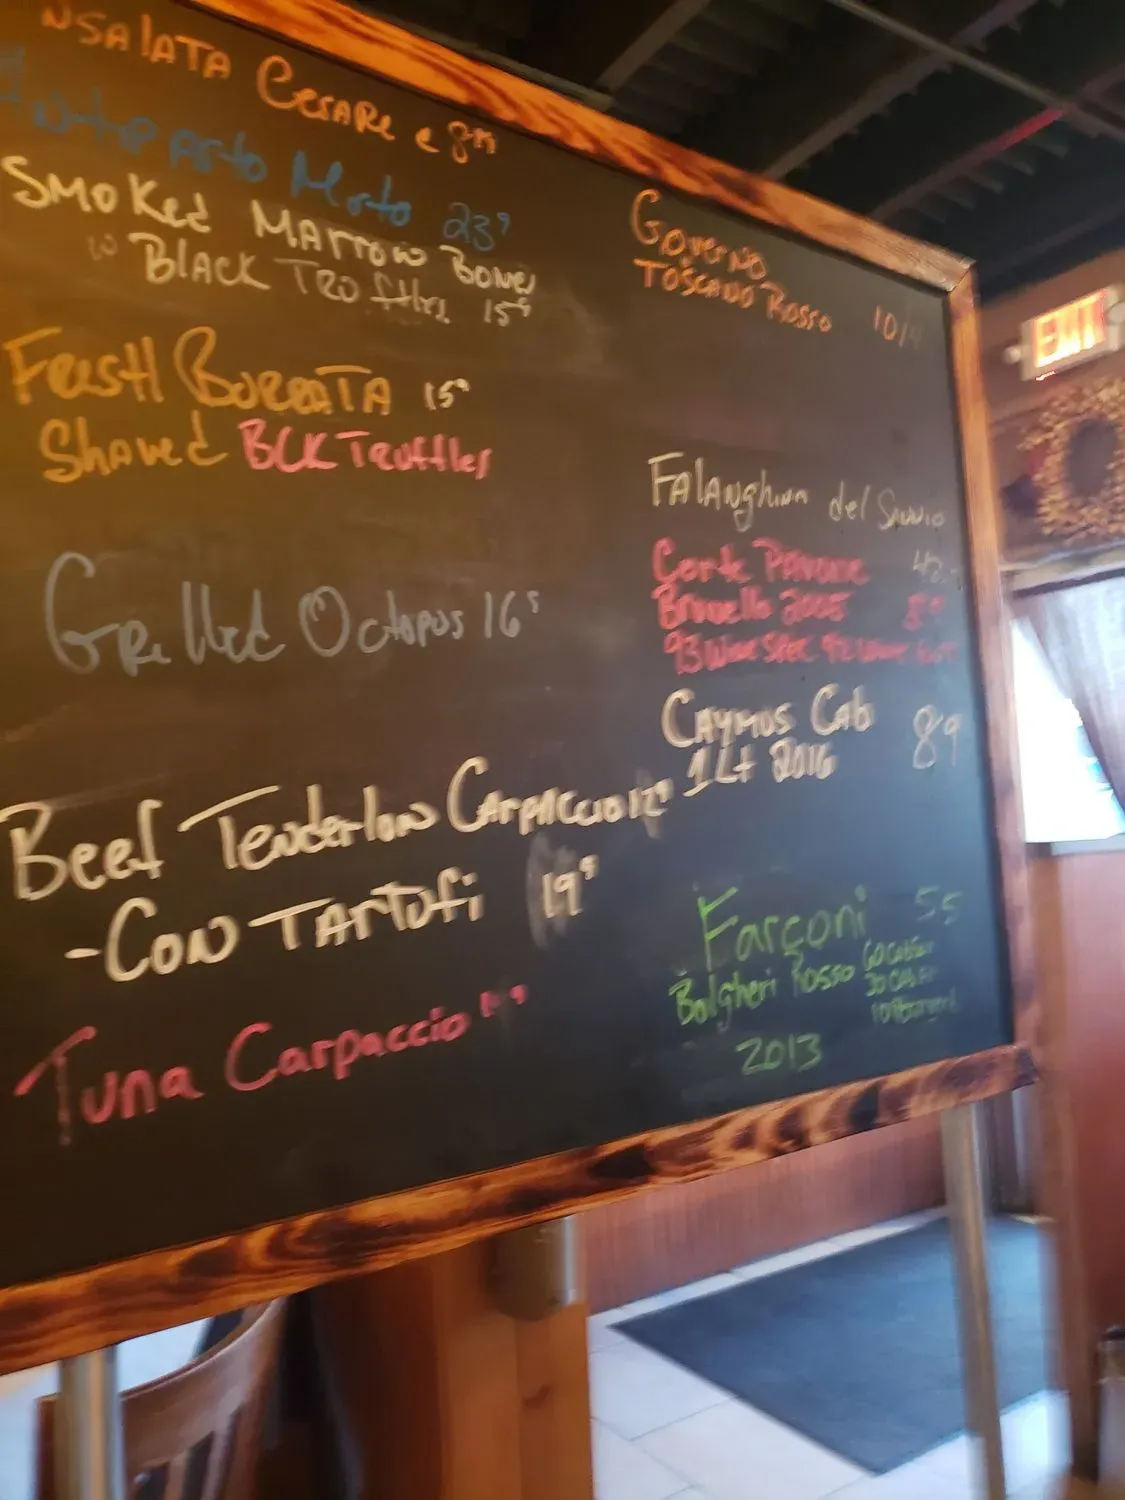 NSALATA CESARE
Antipasto Misto 23⁹
SMOKED MARROW BONES
W BLACK TRUFFLES 15⁹
FRESH BURRATA 15⁹
SHAVED BCK TRUFFLES
GRILLED OCTOPUS 16⁵
BEEF TENDERLOIN CARPACCIO
-CON TARTUFI 19⁵
Tuna Carpaccio
GOVERNO
TOSCANO ROSSO 10/
FALANGHINA del SANNIO
Corte Pavone
Brunello 2005
93 Wine SPEC 92 Wine
CAYMUS Cab 89
1Lt 2016
Farçoni 55
Bolgheri Rosso 60 Cab Sau
2013